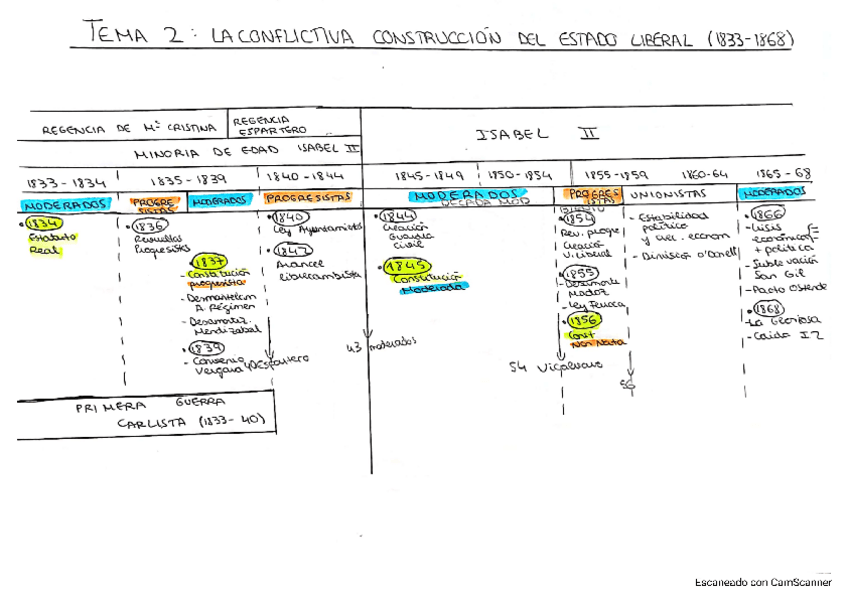 TEMA 2: LA CONFLICTIVA CONSTRUCCIÓN DEL ESTADO LIBERAL (1833-1868)
REGENCIA DE Mª CRISTINA
REGENCIA
ESPARTERO
MINORIA DE EDAD ISABEL II
ISABEL II
1833-1834
1835-1839
1840-1844
1845-1849
1850-1854
1855-1859
1860-64
1865-68
MODERADOS
PROGRE
SISTAS
MODERADOS
PROGRESISTAS
MODERADOS
DECADA MOD
PROGRES
ISTAS
UNIONISTAS
MODERADOS
• 1834
Estatuto
Real
• 1836
Revueltas
Progresistas
• 1837
- Constitución
progresista
- Desmantelam
A. Régimen
- Desamortiz.
Mendizabal
• 1839
- Convenio
Vergara
• 1840
Ley Ayuntamientos
• 1842
Arancel
librecambista
40 Espartero
• 1844
Creación
Guardia
Civil
• 1845
Constitución
Moderada
43 moderados
• 1854
Rev. progre
Creación
U. Liberal
• 1855
- Desamorti
Madoz
- Ley Ferroca
• 1856
Const
Non Nata
54 Vicalvaro
- Estabilidad
política
y econom
- Dimision O'Donell
56
• 1866
- Crisis
económica
+ política
- Sublevación
San Gil
- Pacto Ostende
• 1868
- La Gloriosa
- Caida I2
PRIMERA GUERRA
CARLISTA (1833-40)
Escaneado con CamScanner